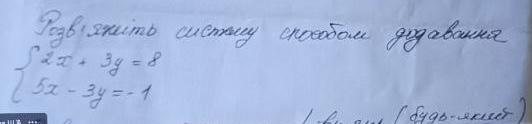 Розв'яжіть систему способом додавання
{ 2x + 3y = 8
{ 5x - 3y = -1
(будь-який)